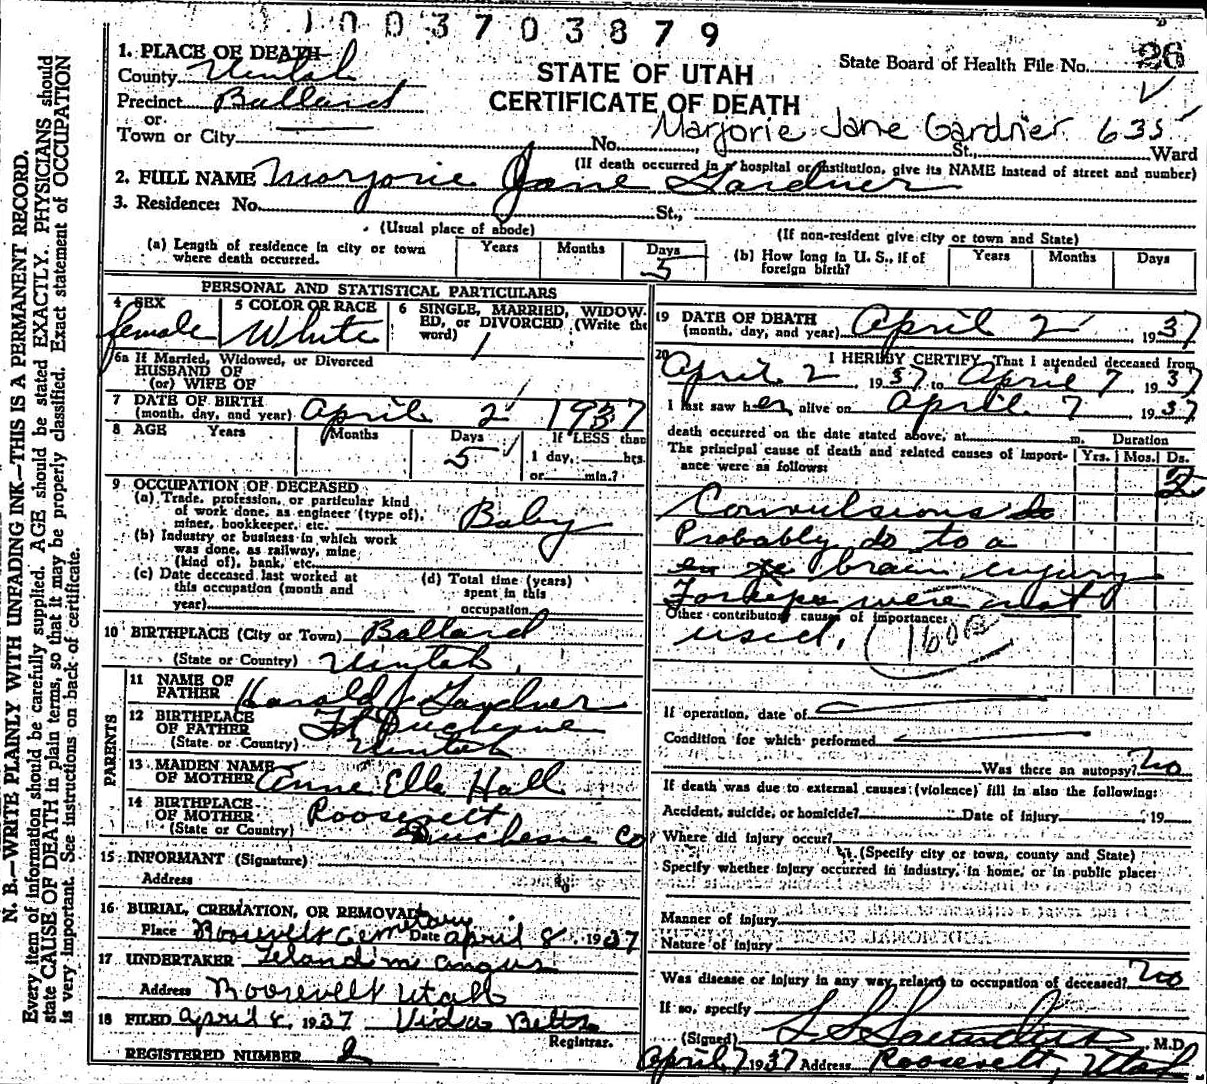 1003703879
1. PLACE OF DEATH
County Uintah
STATE OF UTAH
State Board of Health File No. 26
Precinct Ballard
CERTIFICATE OF DEATH
or
Town or City No. St., Ward
Marjorie Jane Gardner 635
(If death occurred in a hospital or institution, give its NAME instead of street and number)
2. FULL NAME Marjorie Jane Gardner
3. Residence: No. St.,
(Usual place of abode)
(If non-resident give city or town and State)
(a) Length of residence in city or town where death occurred. Years Months Days 5
(b) How long in U. S., if of foreign birth? Years Months Days
PERSONAL AND STATISTICAL PARTICULARS
4 SEX female
5 COLOR OR RACE White
6 SINGLE, MARRIED, WIDOWED, or DIVORCED (Write the word)
6a If Married, Widowed, or Divorced
HUSBAND OF
(or) WIFE OF
7 DATE OF BIRTH
(month, day, and year) April 2 1937
8 AGE Years Months Days 5 If LESS than
1 day, hrs.
or min.?
9 OCCUPATION OF DECEASED
(a) Trade, profession, or particular kind of work done, as engineer (type of), miner, bookkeeper, etc. Baby
(b) Industry or business in which work was done, as railway, mine (kind of), bank, etc.
(c) Date deceased last worked at this occupation (month and year)
(d) Total time (years) spent in this occupation
10 BIRTHPLACE (City or Town) Ballard
(State or Country) Uintah
PARENTS
11 NAME OF FATHER Harold J Gardner
12 BIRTHPLACE OF FATHER Ft Duchesne
(State or Country) Uintah
13 MAIDEN NAME OF MOTHER Anna Ella Hall
14 BIRTHPLACE OF MOTHER Roosevelt
(State or Country) Duchesne Co
15 INFORMANT (Signature)
Address
16 BURIAL, CREMATION, OR REMOVAL
Place Roosevelt Cemetary Date April 8 1937
17 UNDERTAKER Leland M Angus
Address Roosevelt Utah
18 FILED April 8, 1937 Vida Betts
Registrar.
REGISTERED NUMBER 2
19 DATE OF DEATH
(month, day, and year) April 2 1937
20 I HEREBY CERTIFY, That I attended deceased from
April 2, 1937 to April 7 1937
I last saw her alive on April 7 1937
death occurred on the date stated above, at m.
The principal cause of death and related causes of importance were as follows:
Duration
Yrs. Mos. Ds.
Convulsions
Probably do to a
brain injury
Forceps were not
Other contributory causes of importance:
used. 160
If operation, date of
Condition for which performed
Was there an autopsy? No
If death was due to external causes (violence) fill in also the following:
Accident, suicide, or homicide? Date of Injury , 19
Where did injury occur?
(Specify city or town, county and State)
Specify whether injury occurred in industry, in home, or in public place:
Manner of injury
Nature of injury
Was disease or injury in any way related to occupation of deceased? No
If so, specify
(Signed) , M.D.
April 7 1937 Address Roosevelt, Utah
N. B.—WRITE PLAINLY WITH UNFADING INK—THIS IS A PERMANENT RECORD.
Every item of information should be carefully supplied. AGE should be stated EXACTLY. PHYSICIANS should
state CAUSE OF DEATH in plain terms, so that it may be properly classified. Exact statement of OCCUPATION
is very important. See instructions on back of certificate.